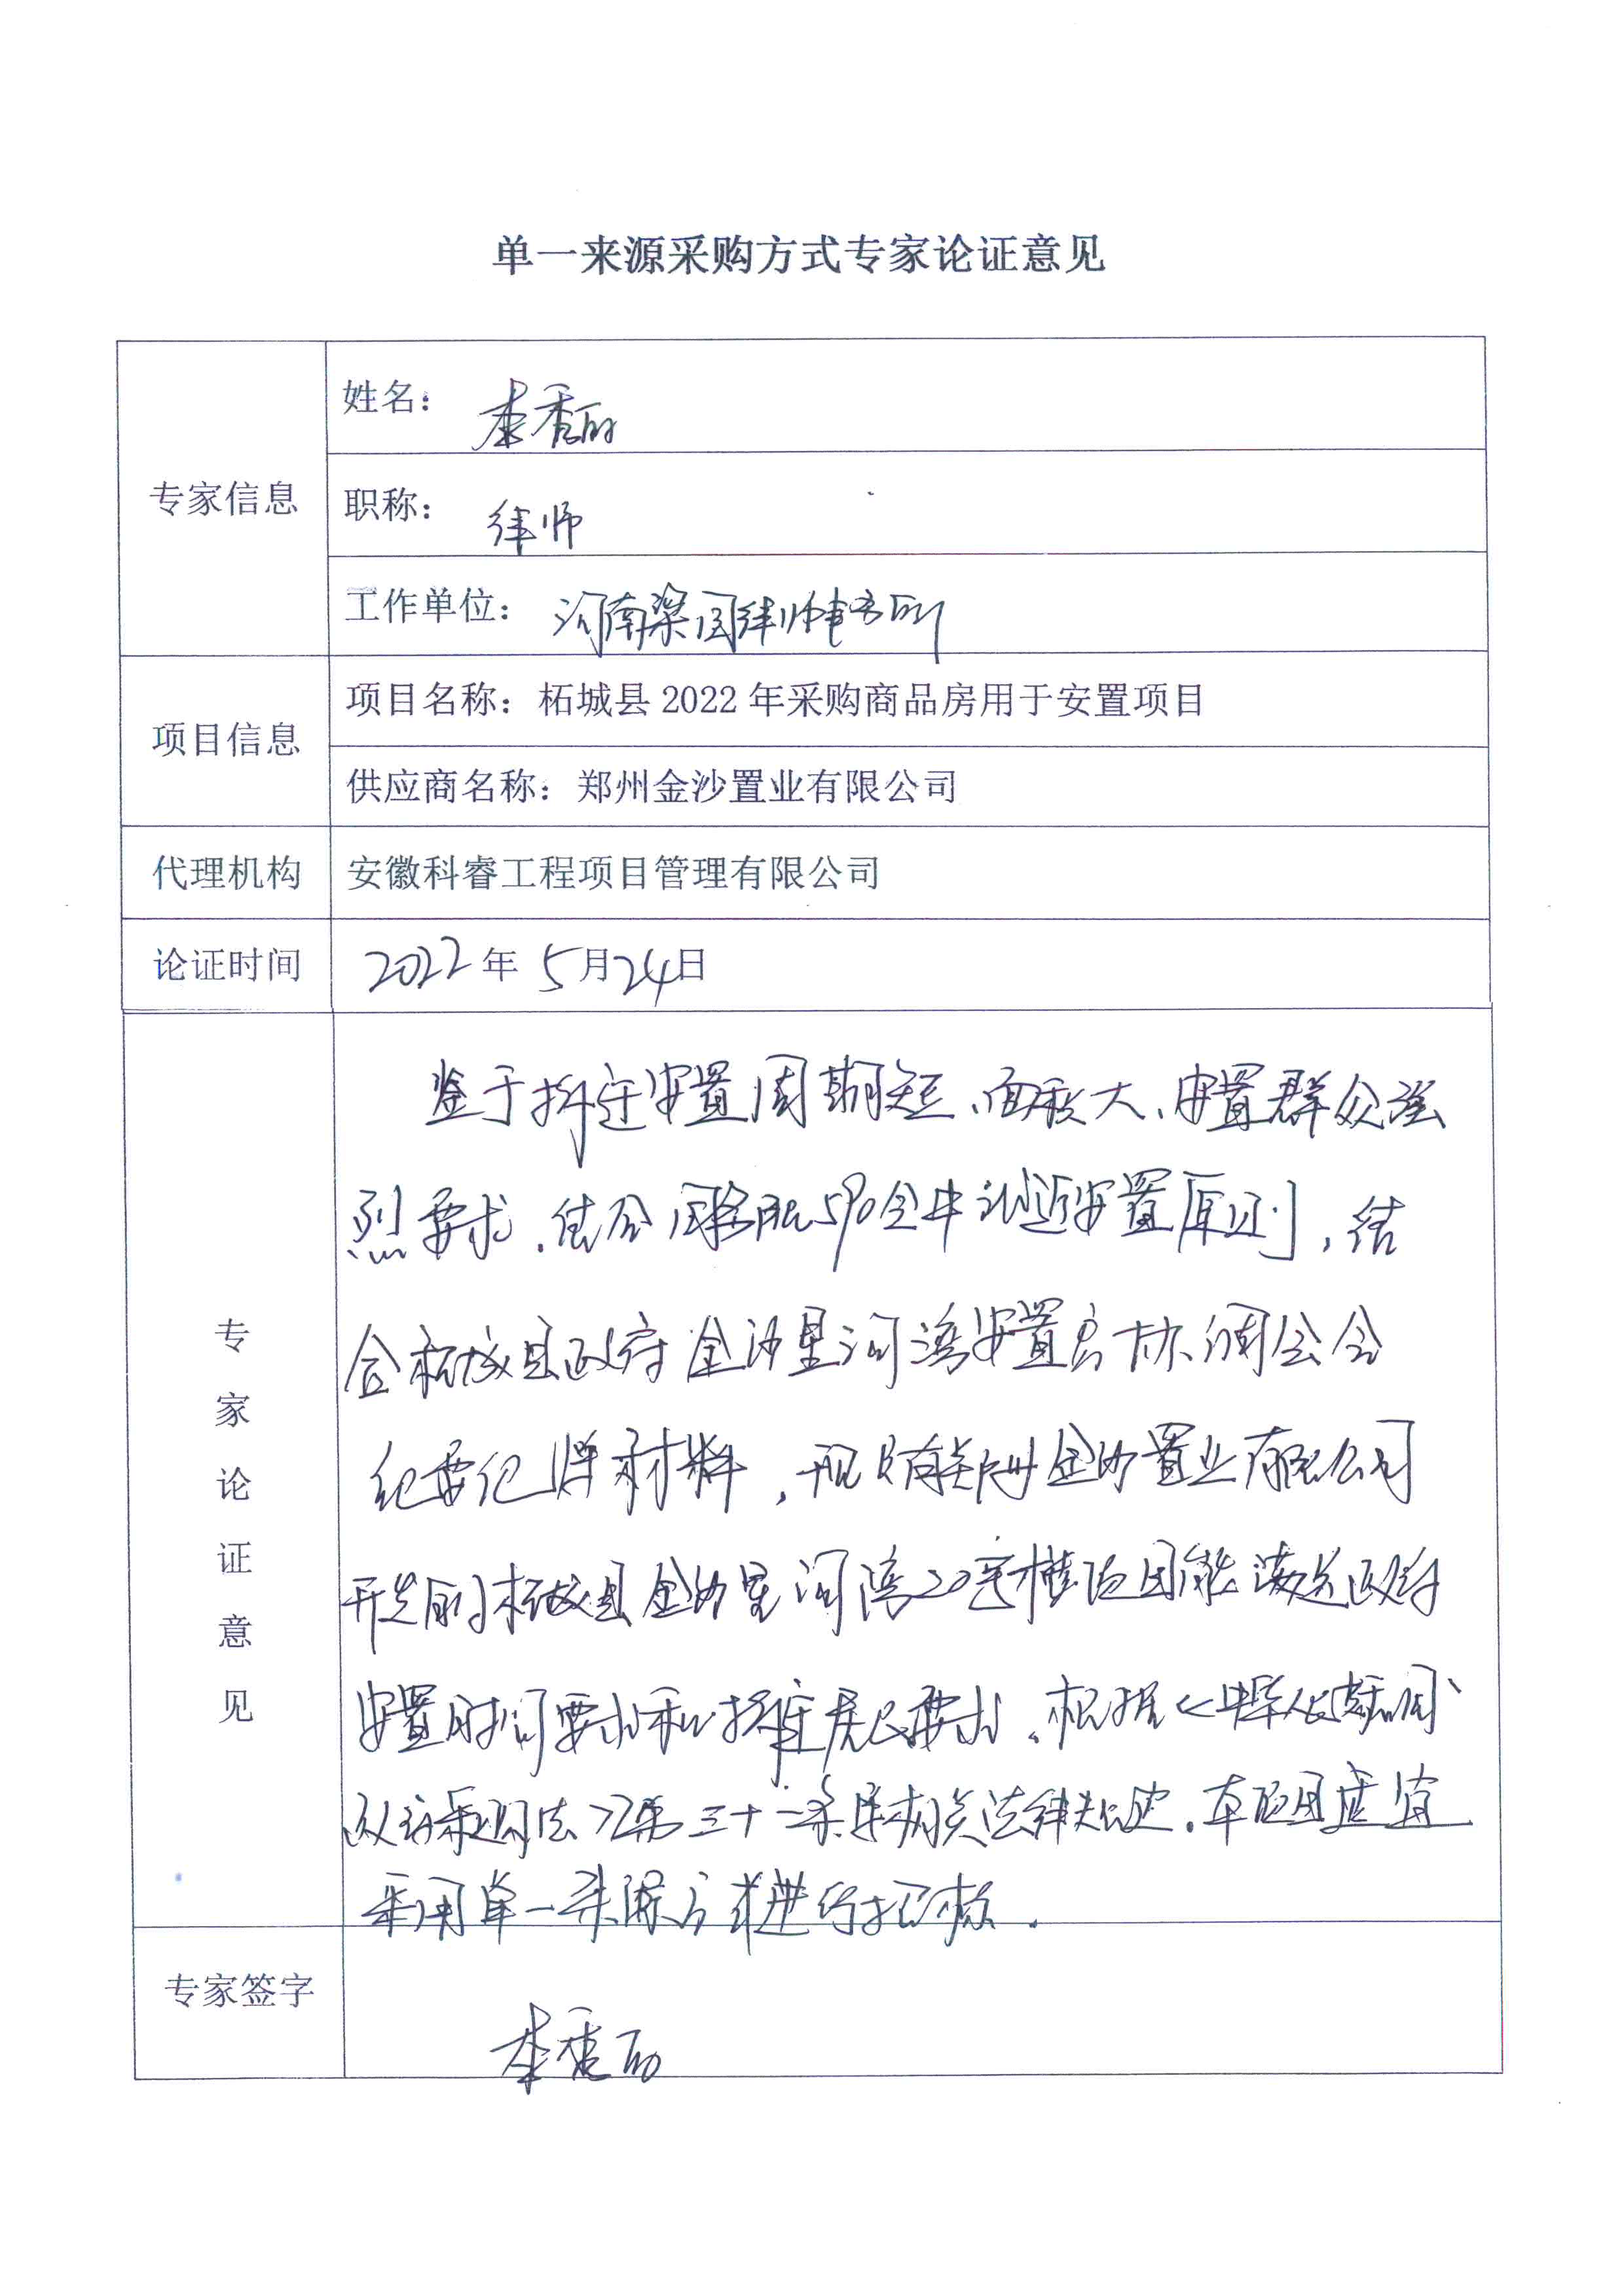 单一来源采购方式专家论证意见
专家信息
姓名：李秀丽
职称：律师
工作单位：河南梁园律师事务所
项目信息
项目名称：柘城县2022年采购商品房用于安置项目
供应商名称：郑州金沙置业有限公司
代理机构
安徽科睿工程项目管理有限公司
论证时间
2022年5月24日
专家论证意见
鉴于拆迁安置周期短、面积大、安置群众强
烈要求、结合国务院590令中就近安置原则，结
合柘城县政府金沙星河湾安置房协调会会
纪要记等材料，现只有郑州金沙置业有限公司
开发的柘城县金沙星河湾20号楼项目能满足政府
安置时间要求和拆迁居民要求。根据《中华人民共和国
政府采购法》第三十一条等相关法律规定，本项目适宜
采用单一来源方式进行招标.
专家签字
李秀丽